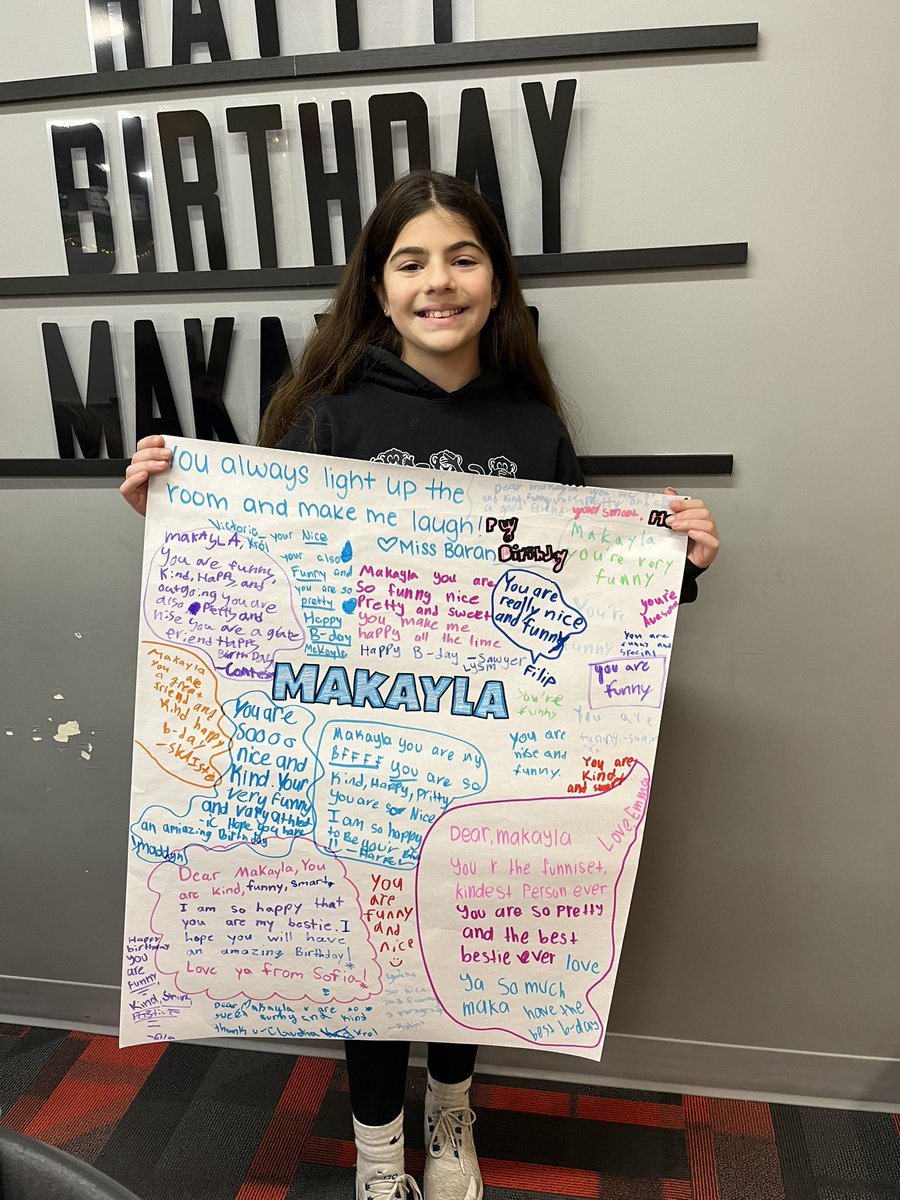 HAPPY
BIRTHDAY
MAKA
You always light up the
room and make me laugh!
♡Miss Baran
Dear Makayla you are
and Kind, Funny,
a good friend
your smart.
PY
Birthday
Makayla
you're very
funny
you're
Awesome
You're
funny
You are
funny and
special
you are
funny
You are
funny
You are
Kind
and smart
Victoria
Krol
your Nice
your also
Funny and
you are so
pretty
Happy
B-day
Makayla
makAYLA,
You are funny,
Kind, Happy, and
outgoing you are
also Pretty and
nise you are a grate
friend Happy
Birth Day
Makayla you are
so funny nice
Pretty and sweet
you make me
happy all the time
Happy B-day -Sawyer
Lysm
You are
really nice
and funny
Filip
MAKAYLA
You're
funny
you are
nise and
funny.
Makayla
You are
a great
friend and
Kind happy
b-day
You are
soooo
nice and
Kind. Your
very funny
and vary athled
-ic Hope you have
an amiazing Birthday
maddyn
Makayla you are my
BFFFF you are so
Kind, Happy, Pritty
you are so Nice
I am so happy
to Be your
Dear Makayla, You
are Kind, funny, smart,
I am so happy that
you are my bestie. I
hope you will have
an amazing Birthday!
Love ya from Sofia!
You
are
funny
and
nice
Dear, makayla
You r the funniset,
kindest Person ever
You are so Pretty
and the best
bestie ever love
ya so much
maka have the
best b-day
Love Emma
Happy
birthday
you
are
Funny,
Kind, Smart,
Positive
-Ella
Dear Makayla u are so
sweet funny and kind
thank u -Claudia Krol